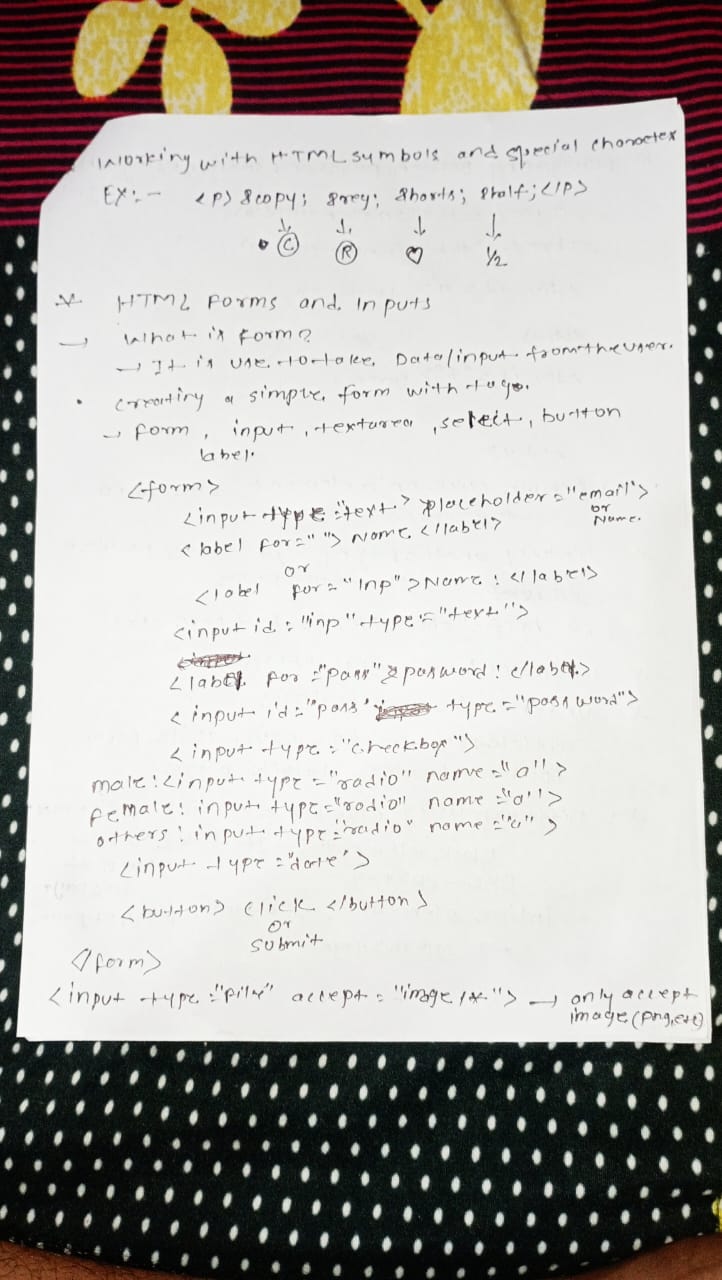 Working with HTML symbols and special charactex
EX:- <p> &copy; &rey; &harts; &half; </p>
↓ ↓ ↓ ↓
© ® ♡ 1/2
* HTML Forms and Inputs
→ What is form?
→ It is use to take Data/input from the user.
• Creating a simple form with tags.
→ form, input, textarea, select, button
label.
<form>
<input type="text" placeholder="email">
or
Name.
<label for=""> Name </label>
or
<label for="Inp">Name: </label>
<input id="inp" type="text">
<label for="pass">password: </label>
<input id="pass" type="password">
<input type="checkbox">
male: <input type="radio" name="a">
female: input type="radio" name="a">
others: input type="radio" name="a">
<input type="date">
<button> click </button>
or
submit
</form>
<input type="file" accept="image/*"> → only accept
image(png,etc)